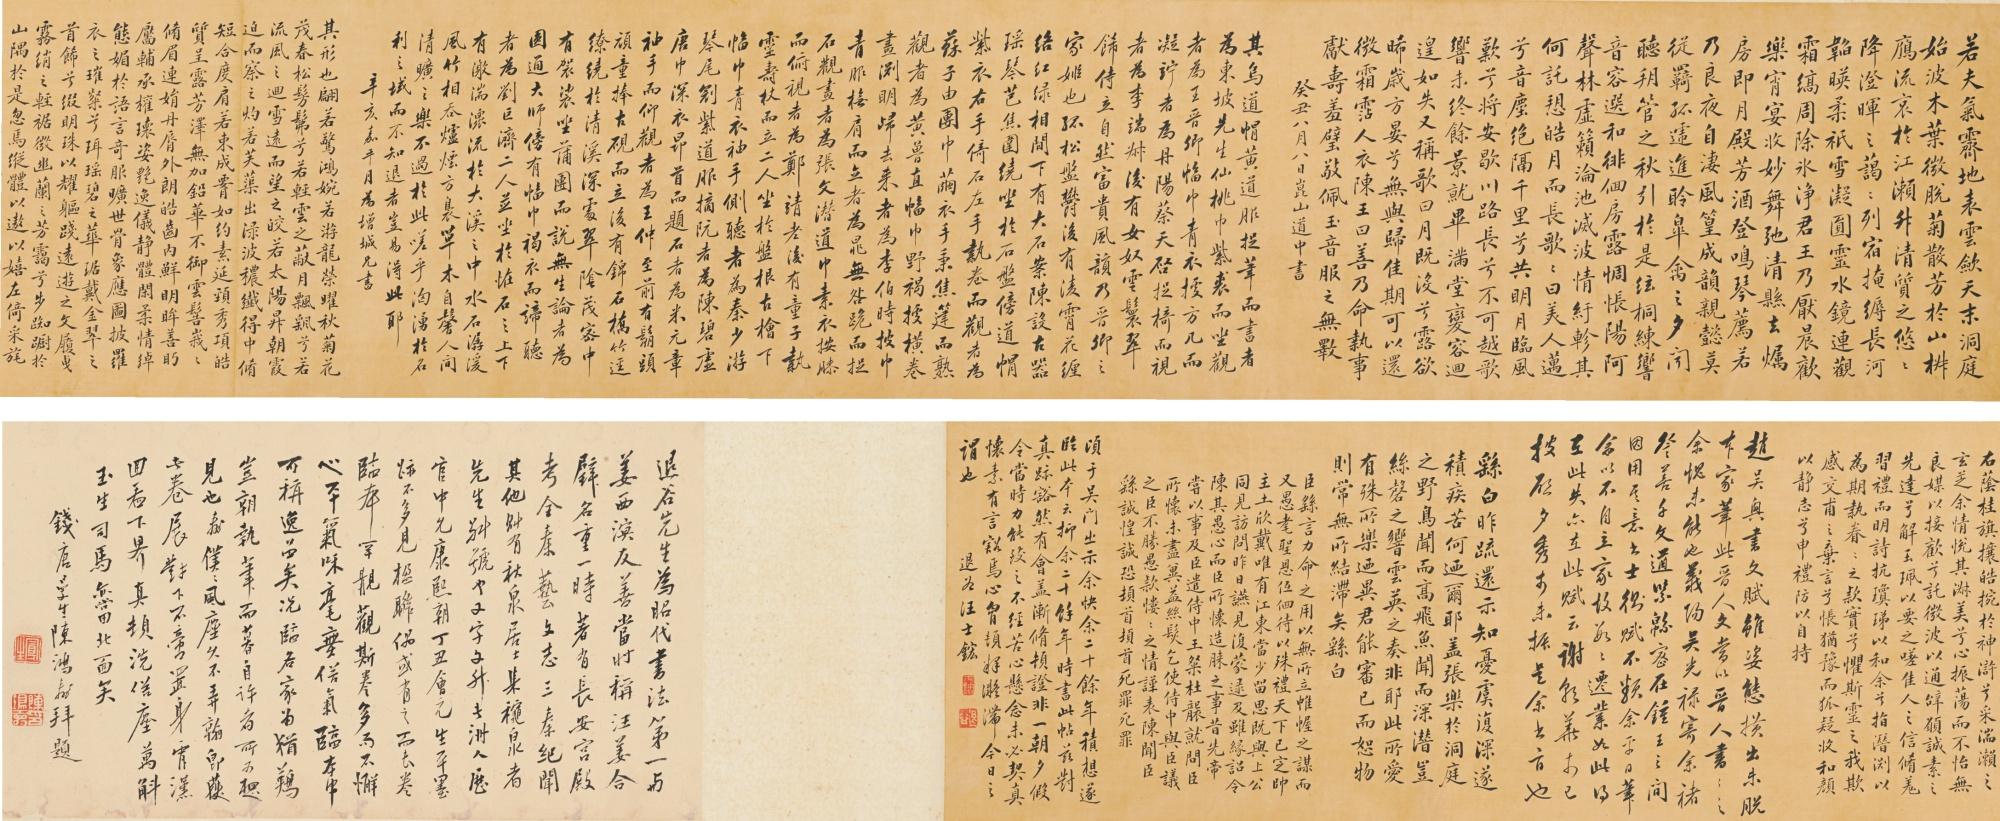 若夫氣霽地表雲斂天末洞庭
始波木葉微脫菊散芳於山椒
鴈流哀於江瀨升清質之悠〻
降澄暉之藹〻列宿掩縟長河
韜暎柔祇雪凝圓靈水鏡連觀
霜縞周除冰淨君王乃厭晨歡
樂宵宴收妙舞弛清縣去燭
房即月殿芳酒登鳴琴薦若
乃良夜自淒風篁成韻親懿莫
從羈孤遞進聆皋禽之夕聞
聽朔管之秋引於是絃桐練響
音容選和徘徊房露惆悵陽阿
聲林虛籟淪池滅波情紆軫其
何託愬皓月而長歌〻曰美人邁
兮音塵絕隔千里兮共明月臨風
歎兮將安歇川路長兮不可越歌
響未終餘景就畢滿堂變容迴
遑如失又稱歌曰月既沒兮露欲
晞歲方晏兮無與歸佳期可以還
微霜霑人衣陳王曰善乃命執事
獻壽羞璧敬佩玉音服之無斁
癸丑八月八日崑山道中書
其烏道帽黃道服捉筆而書者
為東坡先生仙桃巾紫裘而坐觀
者為王晉卿幅巾青衣據方几而
凝竚者為丹陽蔡天啓捉椅而視
者為李端叔後有女奴雲鬟翠
飾侍立自然富貴風韻乃晉卿之
家姬也孤松盤鬱後有凌霄花纏
絡紅綠相間下有大石案陳設古器
瑤琴芭焦圍繞坐於石盤傍道帽
紫衣右手倚石左手執卷而觀者為
蘇子由團巾繭衣手秉焦箑而熟
觀者為黃魯直幅巾野褐據橫卷
畫淵明歸去來者為李伯時披巾
青服撫肩而立者為晁無咎跪而捉
石觀畫者為張文潛道巾素衣按膝
而俯視者為鄭靖老後有童子執
靈壽杖而立二人坐於盤根古檜下
幅巾青衣袖手側聽者為秦少游
琴尾劍紫道服摘阮者為陳碧虛
唐巾深衣昂首而題石者為米元章
袖手而仰觀者為王仲至前有鬅頭
頑童捧古硯而立後有錦石橋竹逕
繚繞於清溪深處翠陰茂密中
有袈裟坐蒲團而說無生論者為
圓通大師傍有幅巾褐衣而諦聽
者為劉巨濟二人並坐於怪石之上下
有激湍潀流於大溪之中水石潺湲
風竹相吞爐煙方裊草木自馨人間
清曠之樂不過於此嗟乎洶湧於名
利之域而不知退者豈易得此耶
辛亥嘉平月為增城兄書
其形也翩若驚鴻婉若游龍榮曜秋菊花
茂春松髣髴兮若輕雲之蔽月飄颻兮若
流風之迴雪遠而望之皎若太陽昇朝霞
迫而察之灼若芙蕖出淥波穠纖得中脩
短合度肩若束成䙅如約素延頸秀項皓
質呈露芳澤無加鉛華不御雲髻峩〻
脩眉連娟丹脣外朗皓齒內鮮明眸善眄
靨輔承權瓌姿艷逸儀靜體閑柔情綽
態媚於語言奇服曠世骨象應圖披羅
衣之璀粲兮珥瑶碧之華琚戴金翠之
首飾兮綴明珠以耀軀踐遠遊之文履曳
霧綃之輕裾微幽蘭之芳靄兮步踟躕於
山隅於是忽焉縱體以遨以嬉左倚采旄
右蔭桂旗攘皓捥於神滸兮采湍瀨之
玄芝余情悅其淑美兮心振蕩而不怡無
良媒以接歡兮託微波以通辭願誠素之
先達兮解玉珮以要之嗟佳人之信脩羌
習禮而明詩抗瓊珶以和余兮指潛淵以
為期執眷〻之款實兮懼斯靈之我欺
感交甫之棄言兮悵猶豫而狐疑收和顏
以靜志兮申禮防以自持
趙吳興書文賦雖姿態橫出未脫
本家筆此晉人文當以晉人書〻之
余愧未能也義陽吳光祿寄余褚
登善千文適柴緜家在鍾王之間
因用其意書士衡賦不類余平日筆
余以不自主家故每〻遷業如此得
在此失亦在此賦云謝朝華於已
披啟夕秀於未振是余書旨也
繇白昨疏還示知憂虞復深遂
積疾苦何迺爾耶蓋張樂於洞庭
之野鳥聞而高飛魚聞而深潛豈
絲磬之響雲英之奏非耶此所愛
有殊所樂迺異君能審己而恕物
則常無所結滯矣繇白
臣繇言力命之用以無所立帷幄之謀而
又愚耄聖恩低佪待以殊禮天下已定帥
主土欣戴唯有江東當少留思既與上公
同見訪問昨日讌見復蒙逮及雖緣詔令
陳其愚心而臣所懷造膝之事昔先帝
嘗以事及臣遣侍中王粲杜襲就問臣
所懷未盡異益絲髮乞使侍中與臣議
之臣不勝愚款慺〻之情謹表陳聞臣
繇誠惶誠恐頓首頓首死罪死罪
頃于吳門出示余快余二十餘年積想遂
臨此本云抑余二十餘年時書此帖茲對
真跡豁然有會蓋漸脩頓證非一朝夕假
令當時力能致之不經苦心懸念未必契真
懷素有言豁焉心胷頓釋凝滯今日之
謂也
退谷汪士鋐
退谷先生為昭代書法第一與
姜西溟友善當時稱汪姜合
璧名重一時著有長安宮殿
考全秦藝文志三秦紀聞
其他
官中允康熙朝丁丑會元生平墨
跡不多見楹聯偶或有之而長卷
臨本罕覯觀斯卷多而不懈
心平氣味毫無俗氣臨本中
可稱逸品矣況臨名家
豈朝執筆而暮自許者所可想
見也
玉生司馬
錢唐學生陳鴻壽拜題